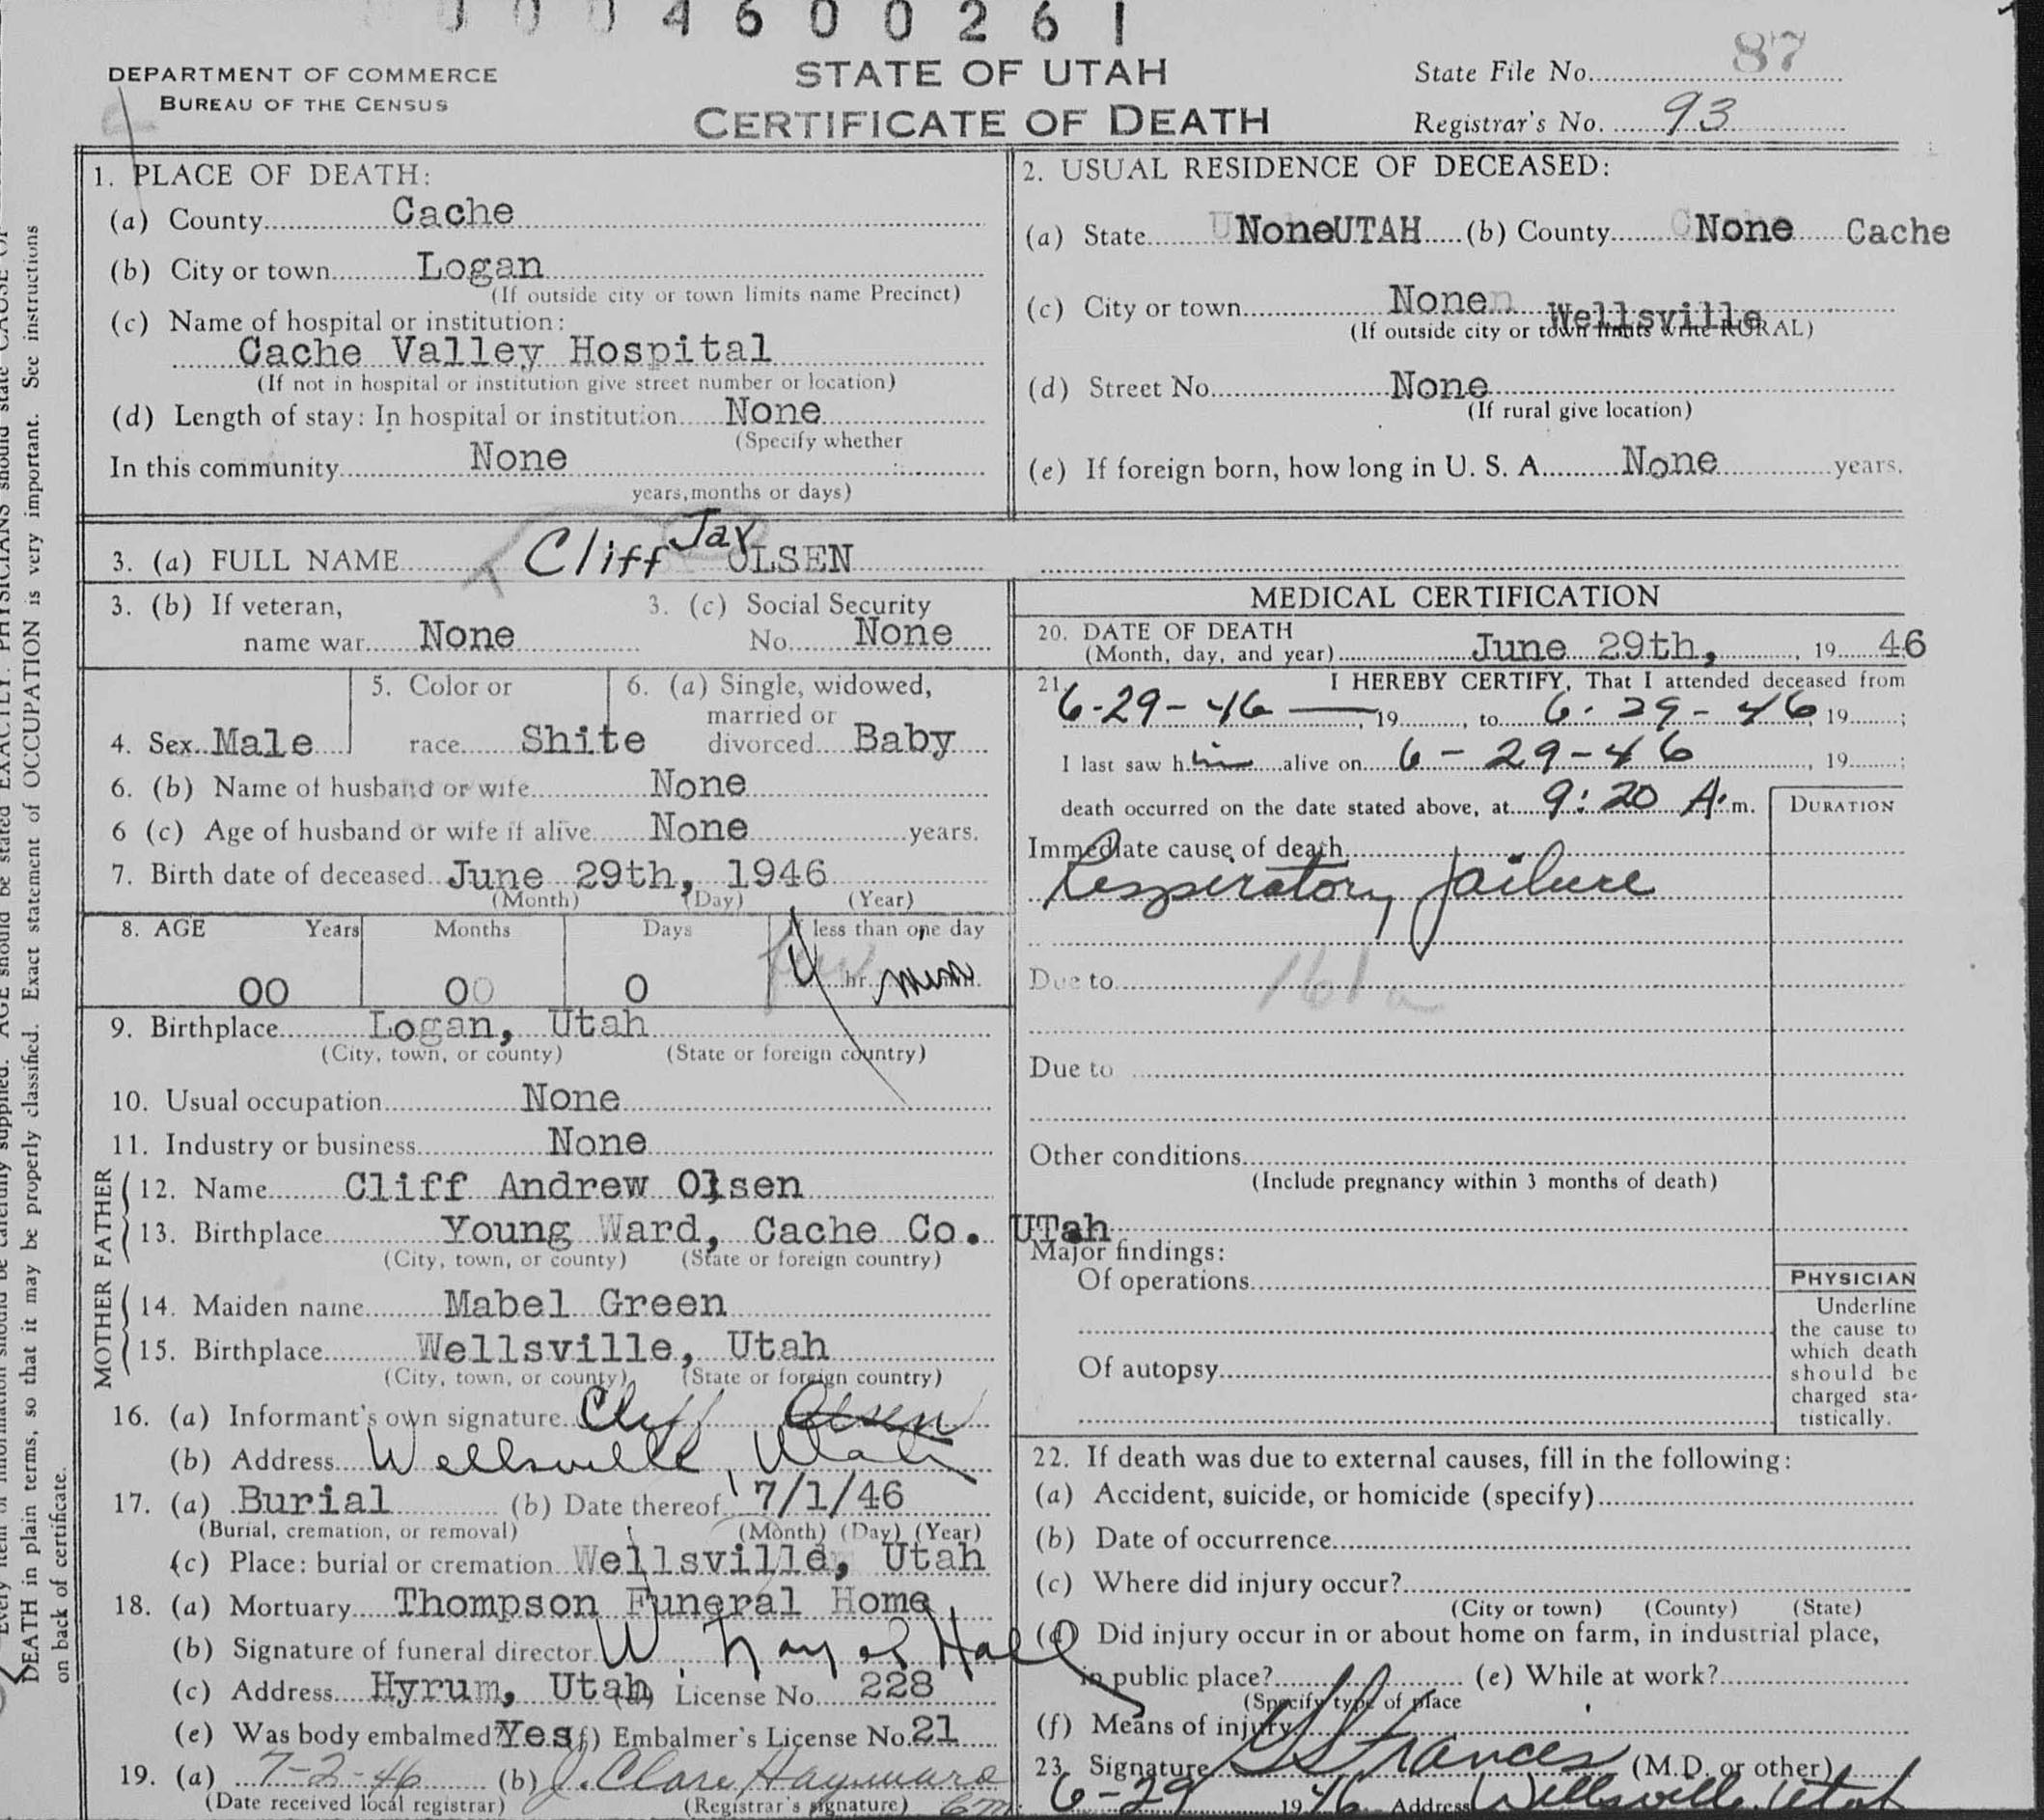 00460261
DEPARTMENT OF COMMERCE
BUREAU OF THE CENSUS
STATE OF UTAH
CERTIFICATE OF DEATH
State File No. 87
Registrar's No. 93
1. PLACE OF DEATH:
(a) County Cache
(b) City or town Logan
(If outside city or town limits name Precinct)
(c) Name of hospital or institution:
Cache Valley Hospital
(If not in hospital or institution give street number or location)
(d) Length of stay: In hospital or institution None
(Specify whether
In this community None
years, months or days)
2. USUAL RESIDENCE OF DECEASED:
(a) State None UTAH (b) County None Cache
(c) City or town None Wellsville
(If outside city or town limits write RURAL)
(d) Street No. None
(If rural give location)
(e) If foreign born, how long in U. S. A. None years.
3. (a) FULL NAME Cliff Jay OLSEN
3. (b) If veteran, 3. (c) Social Security
name war None No. None
5. Color or 6. (a) Single, widowed,
married or
4. Sex Male race Shite divorced Baby
6. (b) Name of husband or wife None
6 (c) Age of husband or wife if alive None years.
7. Birth date of deceased June 29th, 1946
(Month) (Day) (Year)
8. AGE Years Months Days If less than one day
00 00 0 hr. min.
9. Birthplace Logan, Utah
(City, town, or county) (State or foreign country)
10. Usual occupation None
11. Industry or business None
FATHER
12. Name Cliff Andrew Olsen
13. Birthplace Young Ward, Cache Co. UTah
(City, town, or county) (State or foreign country)
MOTHER
14. Maiden name Mabel Green
15. Birthplace Wellsville, Utah
(City, town, or county) (State or foreign country)
16. (a) Informant's own signature Cliff Olsen
(b) Address Wellsville, Utah
17. (a) Burial (b) Date thereof 7/1/46
(Burial, cremation, or removal) (Month) (Day) (Year)
(c) Place: burial or cremation Wellsville, Utah
18. (a) Mortuary Thompson Funeral Home
(b) Signature of funeral director W. Hall
(c) Address Hyrum, Utah (d) License No. 228
(e) Was body embalmed? Yes (f) Embalmer's License No. 21
19. (a) 7-2-46 (b) J. Clare Hayward
(Date received local registrar) (Registrar's signature)
MEDICAL CERTIFICATION
20. DATE OF DEATH
(Month, day, and year) June 29th, , 19 46
21. I HEREBY CERTIFY, That I attended deceased from
6-29-46 — , 19 , to 6-29-46, 19 ;
I last saw h im alive on 6-29-46 , 19 ;
death occurred on the date stated above, at 9:20 A. m.
DURATION
Immediate cause of death
Respiratory failure
Due to 161a
Due to
Other conditions
(Include pregnancy within 3 months of death)
Major findings:
Of operations
Of autopsy
PHYSICIAN
Underline
the cause to
which death
should be
charged sta-
tistically.
22. If death was due to external causes, fill in the following:
(a) Accident, suicide, or homicide (specify)
(b) Date of occurrence
(c) Where did injury occur?
(City or town) (County) (State)
(d) Did injury occur in or about home on farm, in industrial place,
in public place? (e) While at work?
(Specify type of place
(f) Means of injury
23. Signature Frances (M.D. or other)
6-29 19 46 Address Wellsville, Utah
DEATH in plain terms, so that it may be properly classified. Exact statement of OCCUPATION is very important. See instructions
on back of certificate.